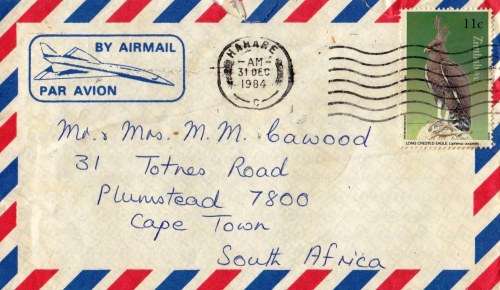 BY AIRMAIL
PAR AVION
HARARE
AM
31 DEC
1984
C
11c
Zimbabwe
LONG CRESTED EAGLE Lophaetus occipitalis
Mr. & Mrs. M. M. Cawood
31 Totnes Road
Plumstead 7800
Cape Town
South Africa